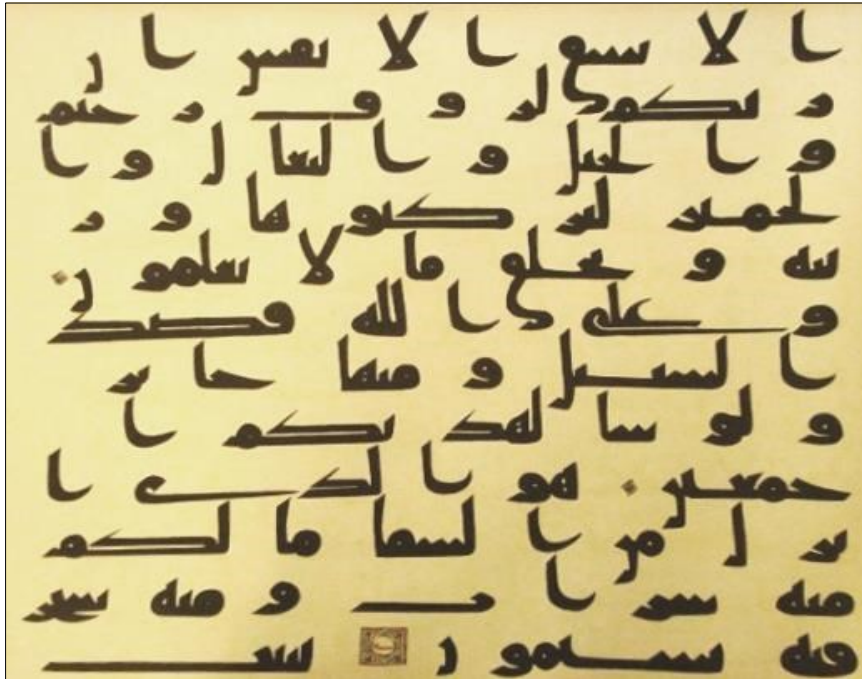 الا بشق الانفس ان
ربكم لروف رحيم
والخيل والبغال وا
لحمير لتركبوها وز
ينه ويخلق ما لا تعلمون
وعلى الله قصد
السبيل ومنها جاير
ولو شا لهديكم ا
جمعين هو الذي ا
نزل من السما ما لكم
منه شراب ومنه شجر
فيه تسيمون ينبت